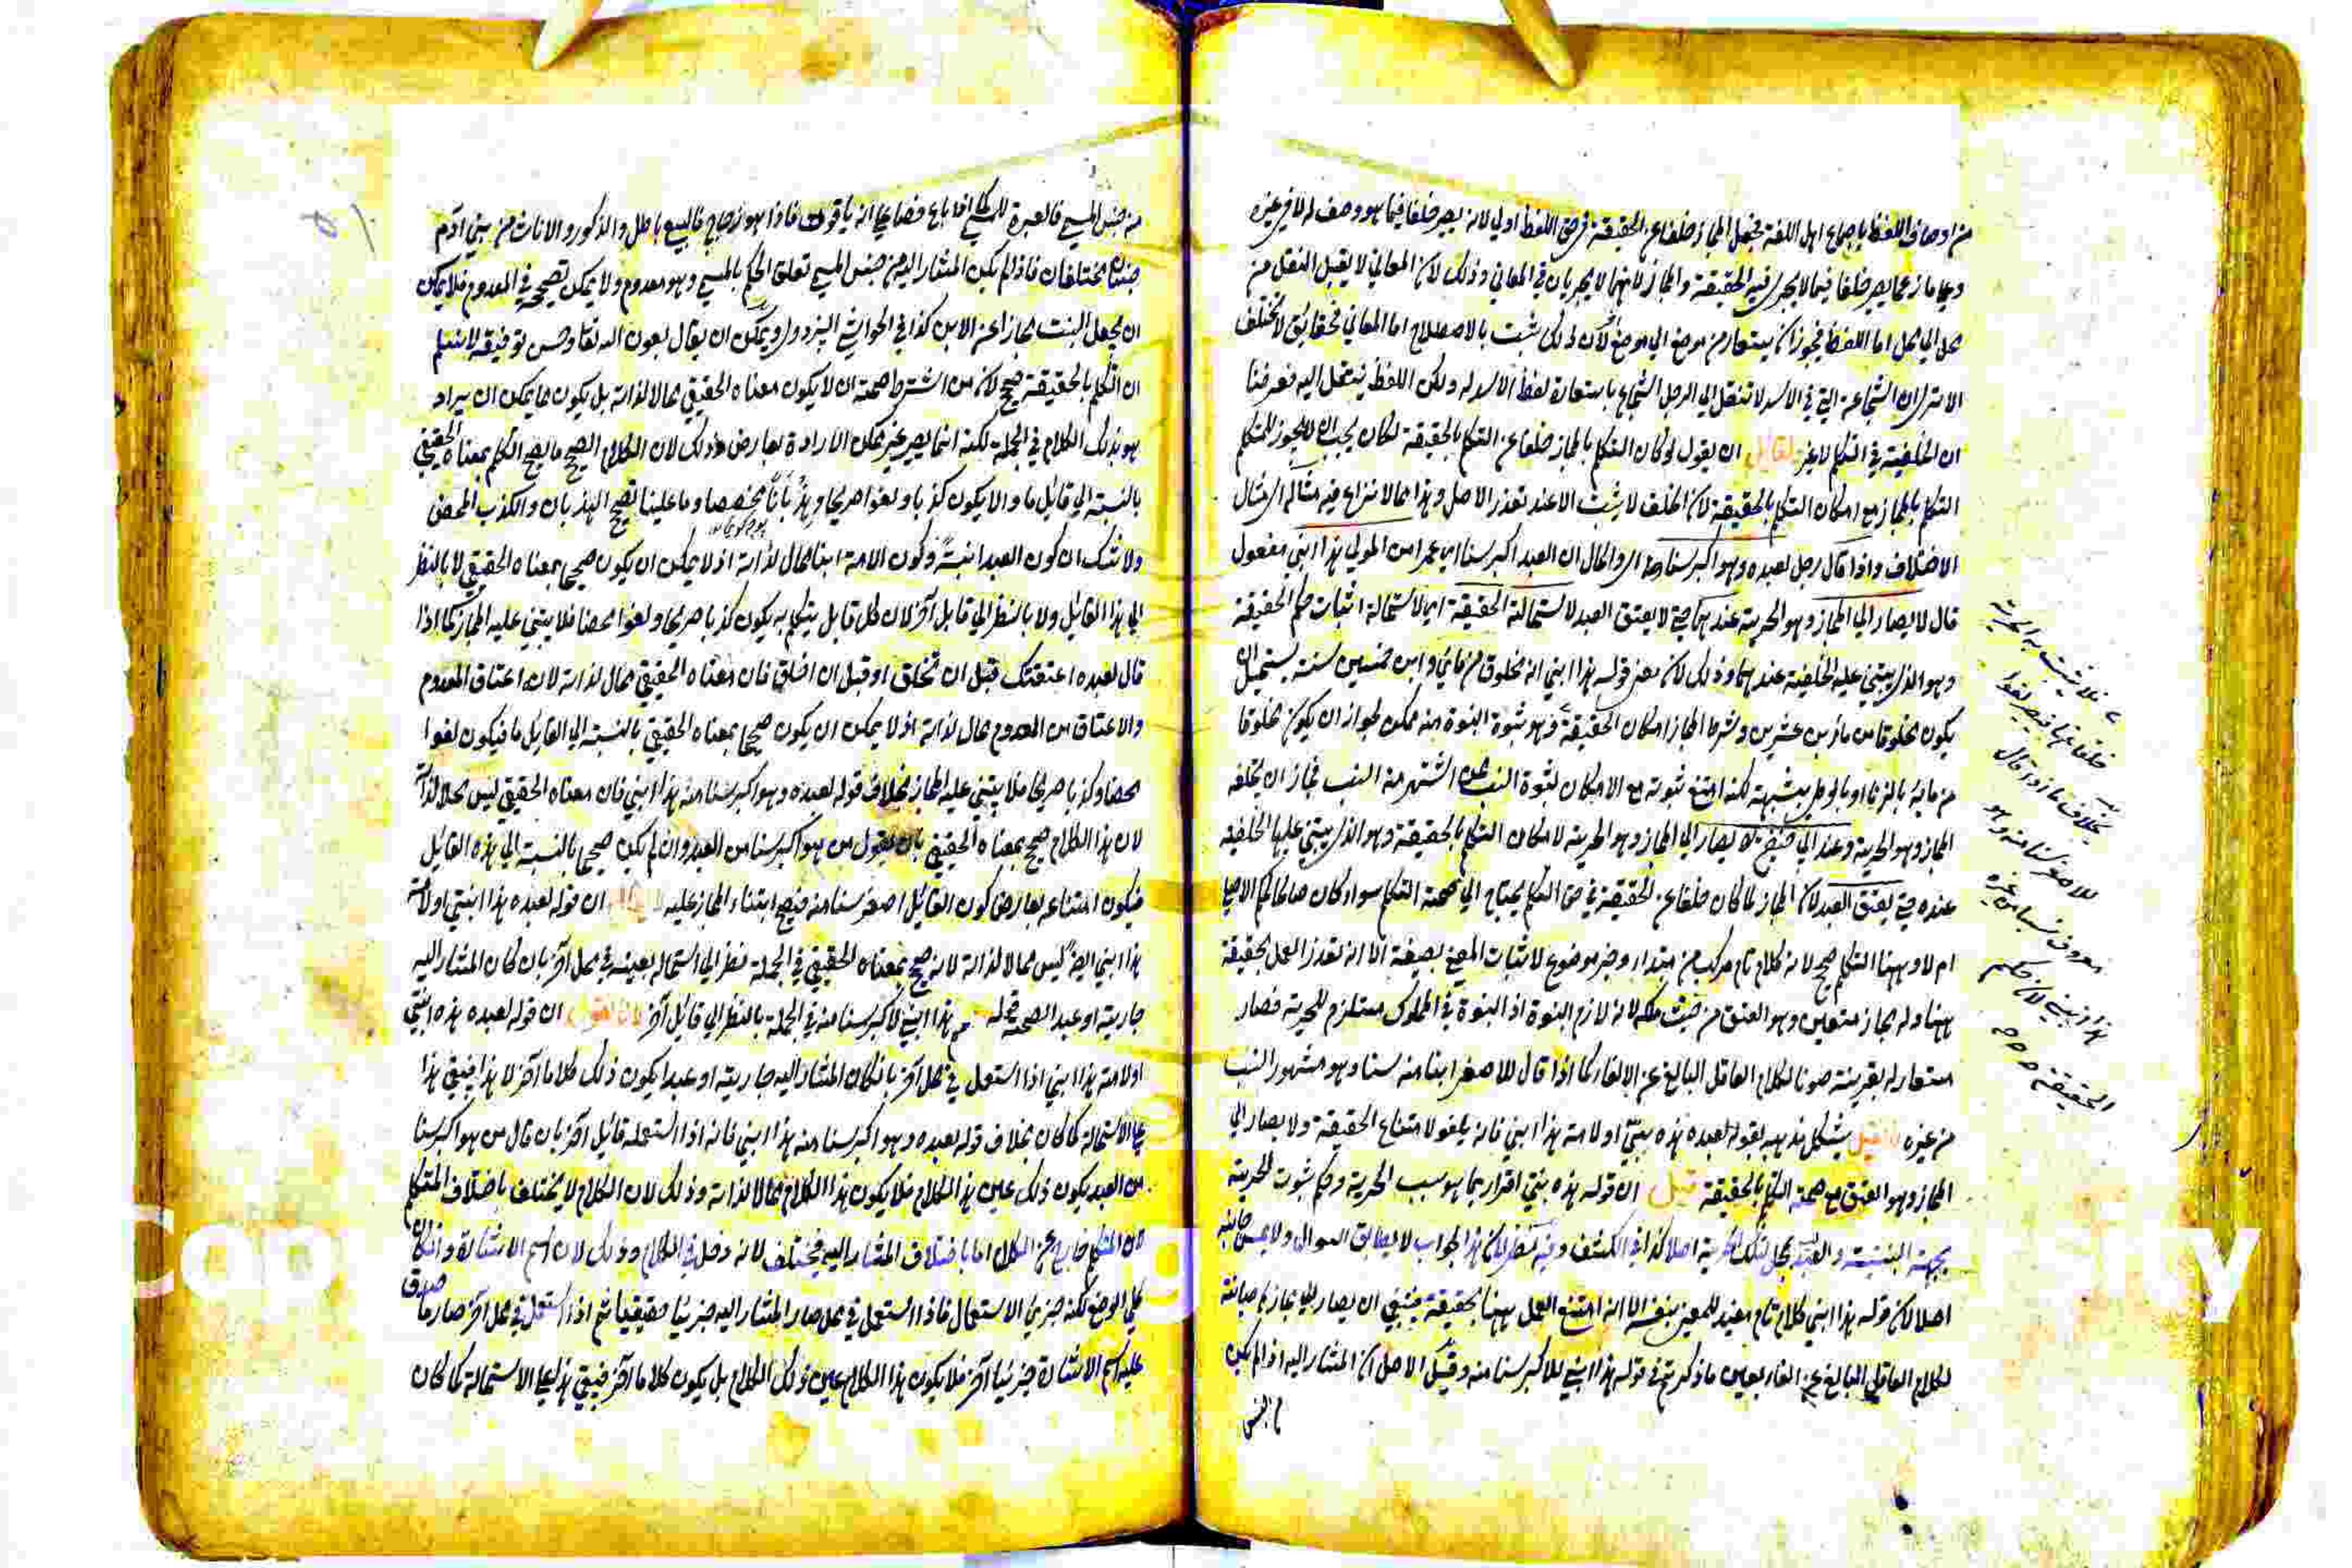 من اوصاف اللفظ باجماع اهل اللغة فجعل المجاز خلفا عن الحقيقة في حق اللفظ اولي لانه يصير خلفا فيما هو وصف له لا في غيره
وعلي ما زعما يصير خلفا فيما لا يجري فيه الحقيقة والمجاز لانهما لا يجريان في المعاني وذلك لان المعاني لا يقبل النقل من
محل الي محل اما اللفظ فيجوز ان يستعار من موضع الي موضع لان ذلك ثبت بالاصطلاح اما المعاني فحقائق لا تختلف
الا تري ان الشجاعة التي في الاسد لا تنتقل الي الرجل الشجاع باستعارة لفظ الاسد له ولكن اللفظ ينتقل اليه فعرفنا
ان الخلفية في التكلم لا غير لقائل ان يقول لو كان التكلم بالمجاز خلفا عن التكلم بالحقيقة لكان يجب ان لا يجوز للمتكلم
التكلم بالمجاز مع امكان التكلم بالحقيقة لان الخلف لا يثبت الا عند تعذر الاصل وهذا مما لا نزاع فيه مثاله اي مثال
الاختلاف واذا قال رجل لعبده وهو اكبر سنا منه اي والحال ان العبد اكبر سنا اي عمرا من المولي هذا ابني مفعول
قال لا يصار الي المجاز وهو الحرية عندهما حتي لا يعتق العبد لاستحالة الحقيقة اي لاستحالة اثبات حكم الحقيقة
وهو الذي يبتني عليه الخلفية عندهما وذلك لان معني قوله هذا ابني انه مخلوق من مائي وابن خمسين سنة يستحيل ان
يكون مخلوقا من ماء ابن عشرين وشرط المجاز امكان الحقيقة وهو ثبوة البنوة منه ممكن لجواز ان يكون مخلوقا
من مائه بالزنا او بالوطي بشبهة لكنه امتنع ثبوته مع الامكان لثبوة النسب ممن اشتهر منه النسب فجاز ان يخلفه
المجاز وهو الحرية وعند ابي حنيفة رح يصار الي المجاز وهو الحرية لامكان التكلم بالحقيقة وهو الذي يبتني عليها الخلفية
عنده حتي يعتق العبد لان المجاز لما كان خلفا عن الحقيقة في حق التكلم يحتاج الي صحة التكلم سواء كان صالحا لحكم الاصل
ام لا وههنا التكلم صحيح لانه كلام تام مركب من مبتداء وخبر موضوع لاثبات المعني بصيغة الا انه تعذر العمل بحقيقة
ههنا وله مجاز متعين وهو العتق من حيث ملكه لانه لازم البنوة اذ البنوة في المملوك مستلزم للحرية فصار
مستعار له بقرينة صونا لكلام العاقل البالغ عن الالغاء كما اذا قال للاصغر ابنا منه سنا وهو مشهور النسب
من غيره فان قيل يشكل مذهبه بقوله لعبده هذه بنتي او لامته هذا ابني فانه يلغو لامتناع الحقيقة ولا يصار الي
المجاز وهو العتق مع صحة التكلم بالحقيقة قيل ان قوله هذه بنتي اقرار بما هو سبب الحرية وحكم ثبوت الحرية
بجهة البنتية والعبد ليس بمحل لتلك الحرية اصلا كذا في الكشف وفيه نظر لان هذا الجواب لا يطابق السوال ولا يمس جانبه
اصلا لان قوله هذا ابني كلام تام مفيد للمعني بنفسه الا انه امتنع العمل ههنا بحقيقة فينبغي ان يصار الي مجازه صيانة
لكلام العاقل البالغ عن الغاء بعين ما ذكرتم في قوله هذا ابني للاكبر سنا منه وقيل الاصل ان المشار اليه اذا لم يكن
من جنس
فلا يثبت به الحرية
خلفا عنها فيصير لغوا
بخلاف ما اذا قال
للاصغر سنا منه وهو
معروف نسبا من غيره
هذا ابني لان حكم
الحقيقة
من جنس المسمي فالعبرة للمسمي كما اذا باع فصا علي انه ياقوت فاذا هو زجاج فالبيع باطل والذكور والاناث من بني آدم
جنسان مختلفان فاذا لم يكن المشار اليه من جنس المسمي تعلق الحكم بالمسمي وهو معدوم ولا يمكن تصحيحه في المعدوم فلا يمكن
ان يجعل البنت مجازا عن الابن كذا في الحواشي البزدوي ويمكن ان يقال بعون الله تعالي وحسن توفيقه لا نسلم
ان التكلم بالحقيقة صحيح لان من اشتراط صحته ان لا يكون معناه الحقيقي محالا لذاته بل يكون مما يمكن ان يراد
هو بذلك الكلام في الجملة لكنه انما يصير غير ممكن الارادة بعارض وذلك لان الكلام الصحيح ما يصح التكلم بمعناه الحقيقي
بالنسبة الي قائل ما والا يكون كذبا ولغوا صريحا وهذيانا مخصصا وما علينا تصحيح الهذيان والكذب المحض
ولا شك ان كون العبد ابنة وكون الامة ابنا محال لذاته اذ لا يمكن ان يكون صحيحا بمعناه الحقيقي لا بالنظر
الي هذا القائل ولا بالنظر الي قايل آخر لان كل قايل يتكلم به يكون كذبا صريحا ولغوا محضا فلا يبتني عليه المجاز كما اذا
قال لعبده اعتقتك قبل ان تخلق او قبل ان اخلق فان معناه الحقيقي محال لذاته لان اعتاق المعدوم
والاعتاق من المعدوم محال لذاته اذ لا يمكن ان يكون صحيحا بمعناه الحقيقي بالنسبة الي القايل ما فيكون لغوا
محضا وكذبا صريحا فلا يبتني عليه المجاز بخلاف قوله لعبده وهو اكبر سنا منه هذا ابني فان معناه الحقيقي ليس محالا لذاته
لان هذا الكلام صحيح بمعناه الحقيقي بان يقول من هو اكبر سنا من العبد وان لم يكن صحيحا بالنسبة الي هذه القائل
فيكون امتناعه بعارض كون القائل اصغر سنا منه فيصح ابتناء المجاز عليه ان قوله لعبده هذا ابنتي او لامته
هذا ابني ايضا ليس محالا لذاته لانه صحيح بمعناه الحقيقي في الجملة نظر الي استحالة بعينه في محل آخر بان كان المشار اليه
جارية او عبدا لصحة قوله هذا ابني لاكبر سنا منه في الجملة بالنظر الي قائل آخر لانا نقول ان قوله لعبده هذه ابنتي
او لامته هذا ابني اذا استعمل في محل آخر بان كان المشار اليه جارية او عبدا يكون ذلك كلاما آخر لا هذا فيبقي هذا
علي الاستحالة كما كان بخلاف قوله لعبده وهو اكبر سنا منه هذا ابني فانه اذا استعمله قائل آخر بان قال من هو اكبر سنا
من العبد يكون ذلك عين هذا الكلام فلا يكون هذا الكلام محالا لذاته وذلك لان الكلام لا يختلف باختلاف المتكلم
لان المتكلم خارج عن الكلام اما باختلاف المشار اليه فيختلف لانه دخل في الكلام وذلك لان اسم الاشارة وان كان
كلي الوضع لكنه جزئي الاستعمال فاذا استعمل في محل صار المشار اليه جزئيا حقيقيا ثم اذا استعمل في محل آخر صار ما صدق
عليه اسم الاشارة جزئيا آخر فلا يكون هذا الكلام عين ذلك الكلام بل يكون كلاما آخر فيبقي هذا علي الاستحالة كما كان